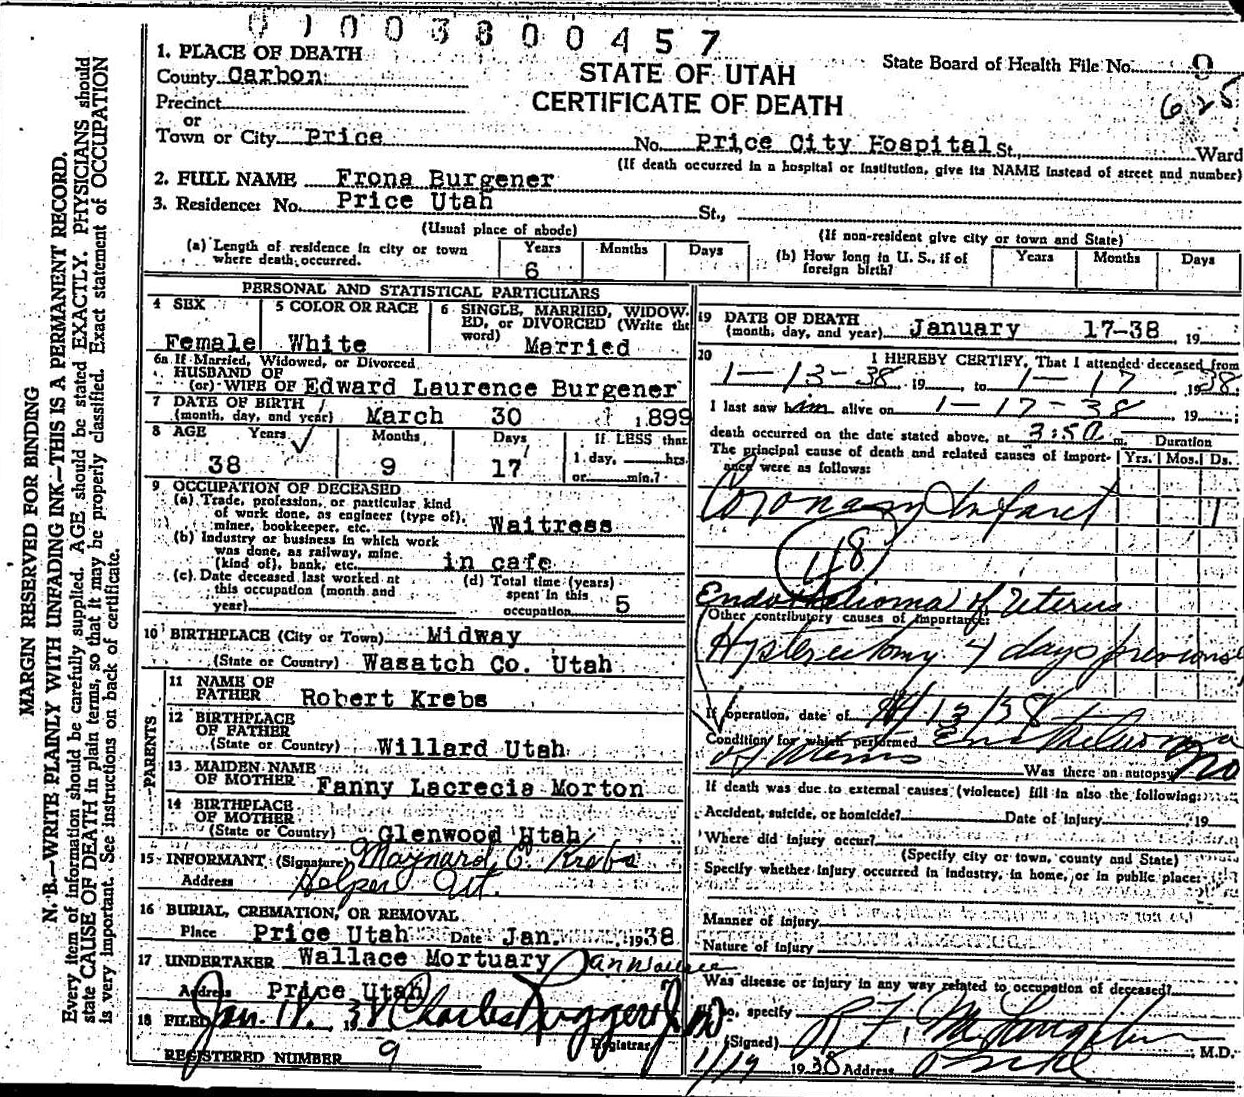 01003800457
1. PLACE OF DEATH
County Carbon
STATE OF UTAH
CERTIFICATE OF DEATH
State Board of Health File No. 9
625
Precinct
or
Town or City Price No. Price City Hospital St., Ward
(If death occurred in a hospital or institution, give its NAME instead of street and number)
2. FULL NAME Frona Burgener
3. Residence: No. Price Utah St.,
(Usual place of abode) (If non-resident give city or town and State)
(a) Length of residence in city or town where death occurred. Years 6 Months Days
(b) How long in U. S., if of foreign birth? Years Months Days
PERSONAL AND STATISTICAL PARTICULARS
4 SEX Female
5 COLOR OR RACE White
6 SINGLE, MARRIED, WIDOWED, or DIVORCED (Write the word) Married
6a If Married, Widowed, or Divorced
HUSBAND OF
(or) WIFE OF Edward Laurence Burgener
7 DATE OF BIRTH
(month, day, and year) March 30 1899
8 AGE Years 38 Months 9 Days 17 If LESS than 1 day, hrs. or min.?
9 OCCUPATION OF DECEASED
(a) Trade, profession, or particular kind
of work done, as engineer (type of),
miner, bookkeeper, etc. Waitress
(b) Industry or business in which work
was done, as railway, mine
(kind of), bank, etc. in cafe
(c) Date deceased last worked at
this occupation (month and
year)
(d) Total time (years)
spent in this
occupation 5
10 BIRTHPLACE (City or Town) Midway
(State or Country) Wasatch Co. Utah
PARENTS
11 NAME OF
FATHER Robert Krebs
12 BIRTHPLACE
OF FATHER
(State or Country) Willard Utah
13 MAIDEN NAME
OF MOTHER Fanny Lacrecia Morton
14 BIRTHPLACE
OF MOTHER
(State or Country) Glenwood Utah
15 INFORMANT (Signature) Maynard C. Krebs
Address Helper Ut.
16 BURIAL, CREMATION, OR REMOVAL
Place Price Utah Date Jan. 1938
17 UNDERTAKER Wallace Mortuary
Address Price Utah
18 FILED Jan. 19 38 Charles Ruggeri Jr MD
Registrar
REGISTERED NUMBER 9
19 DATE OF DEATH
(month, day, and year) January 17-38 19
20 I HEREBY CERTIFY, That I attended deceased from
1-13-38 19 to 1-17 1938
I last saw him alive on 1-17-38 19
death occurred on the date stated above, at 3:50 m. Duration
The principal cause of death and related causes of importance were as follows: Yrs. Mos. Ds.
Coronary Infarct 1
Endothelioma of Uterus
Other contributory causes of importance:
Hysterectomy 4 days previous
If operation, date of 1/13/38
Condition for which performed Endothelioma
of Uterus
Was there an autopsy No
If death was due to external causes (violence) fill in also the following:
Accident, suicide, or homicide? Date of injury 19
Where did injury occur?
(Specify city or town, county and State)
Specify whether injury occurred in industry, in home, or in public place:
Manner of injury
Nature of injury
Was disease or injury in any way related to occupation of deceased?
If so, specify
(Signed) R F. McLaughlin M.D.
1/19 1938 Address Price
MARGIN RESERVED FOR BINDING
N. B.—WRITE PLAINLY WITH UNFADING INK—THIS IS A PERMANENT RECORD.
Every item of information should be carefully supplied. AGE should be stated EXACTLY. PHYSICIANS should
state CAUSE OF DEATH in plain terms, so that it may be properly classified. Exact statement of OCCUPATION
is very important. See instructions on back of certificate.